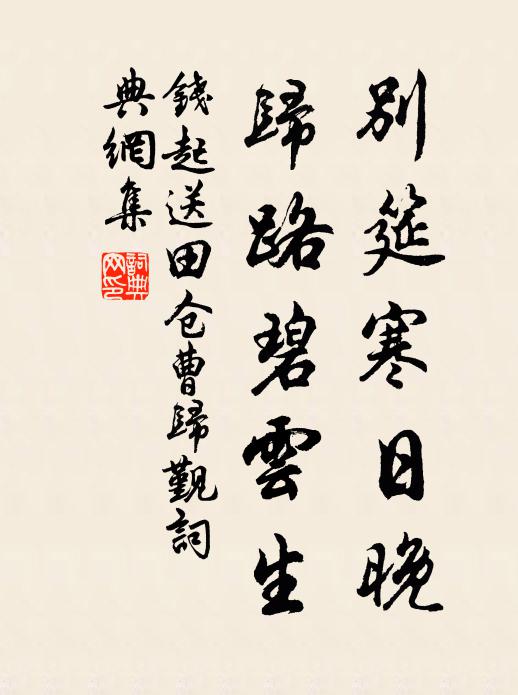 別筵寒日晚
歸路碧雲生
錢起送田仓曹歸覲詞
典網集
詞典网印